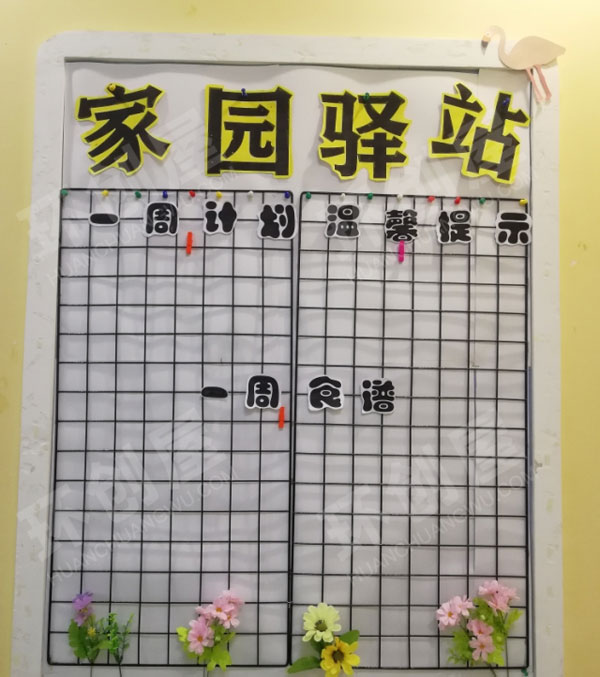 家园驿站
一周计划 温馨提示
一周食谱
环创屋
HUANCHUANGWU.COM
环创屋
HUANCHUANGWU.COM
环创屋
HUANCHUANGWU.COM
环创屋
HUANCHUANGWU.COM